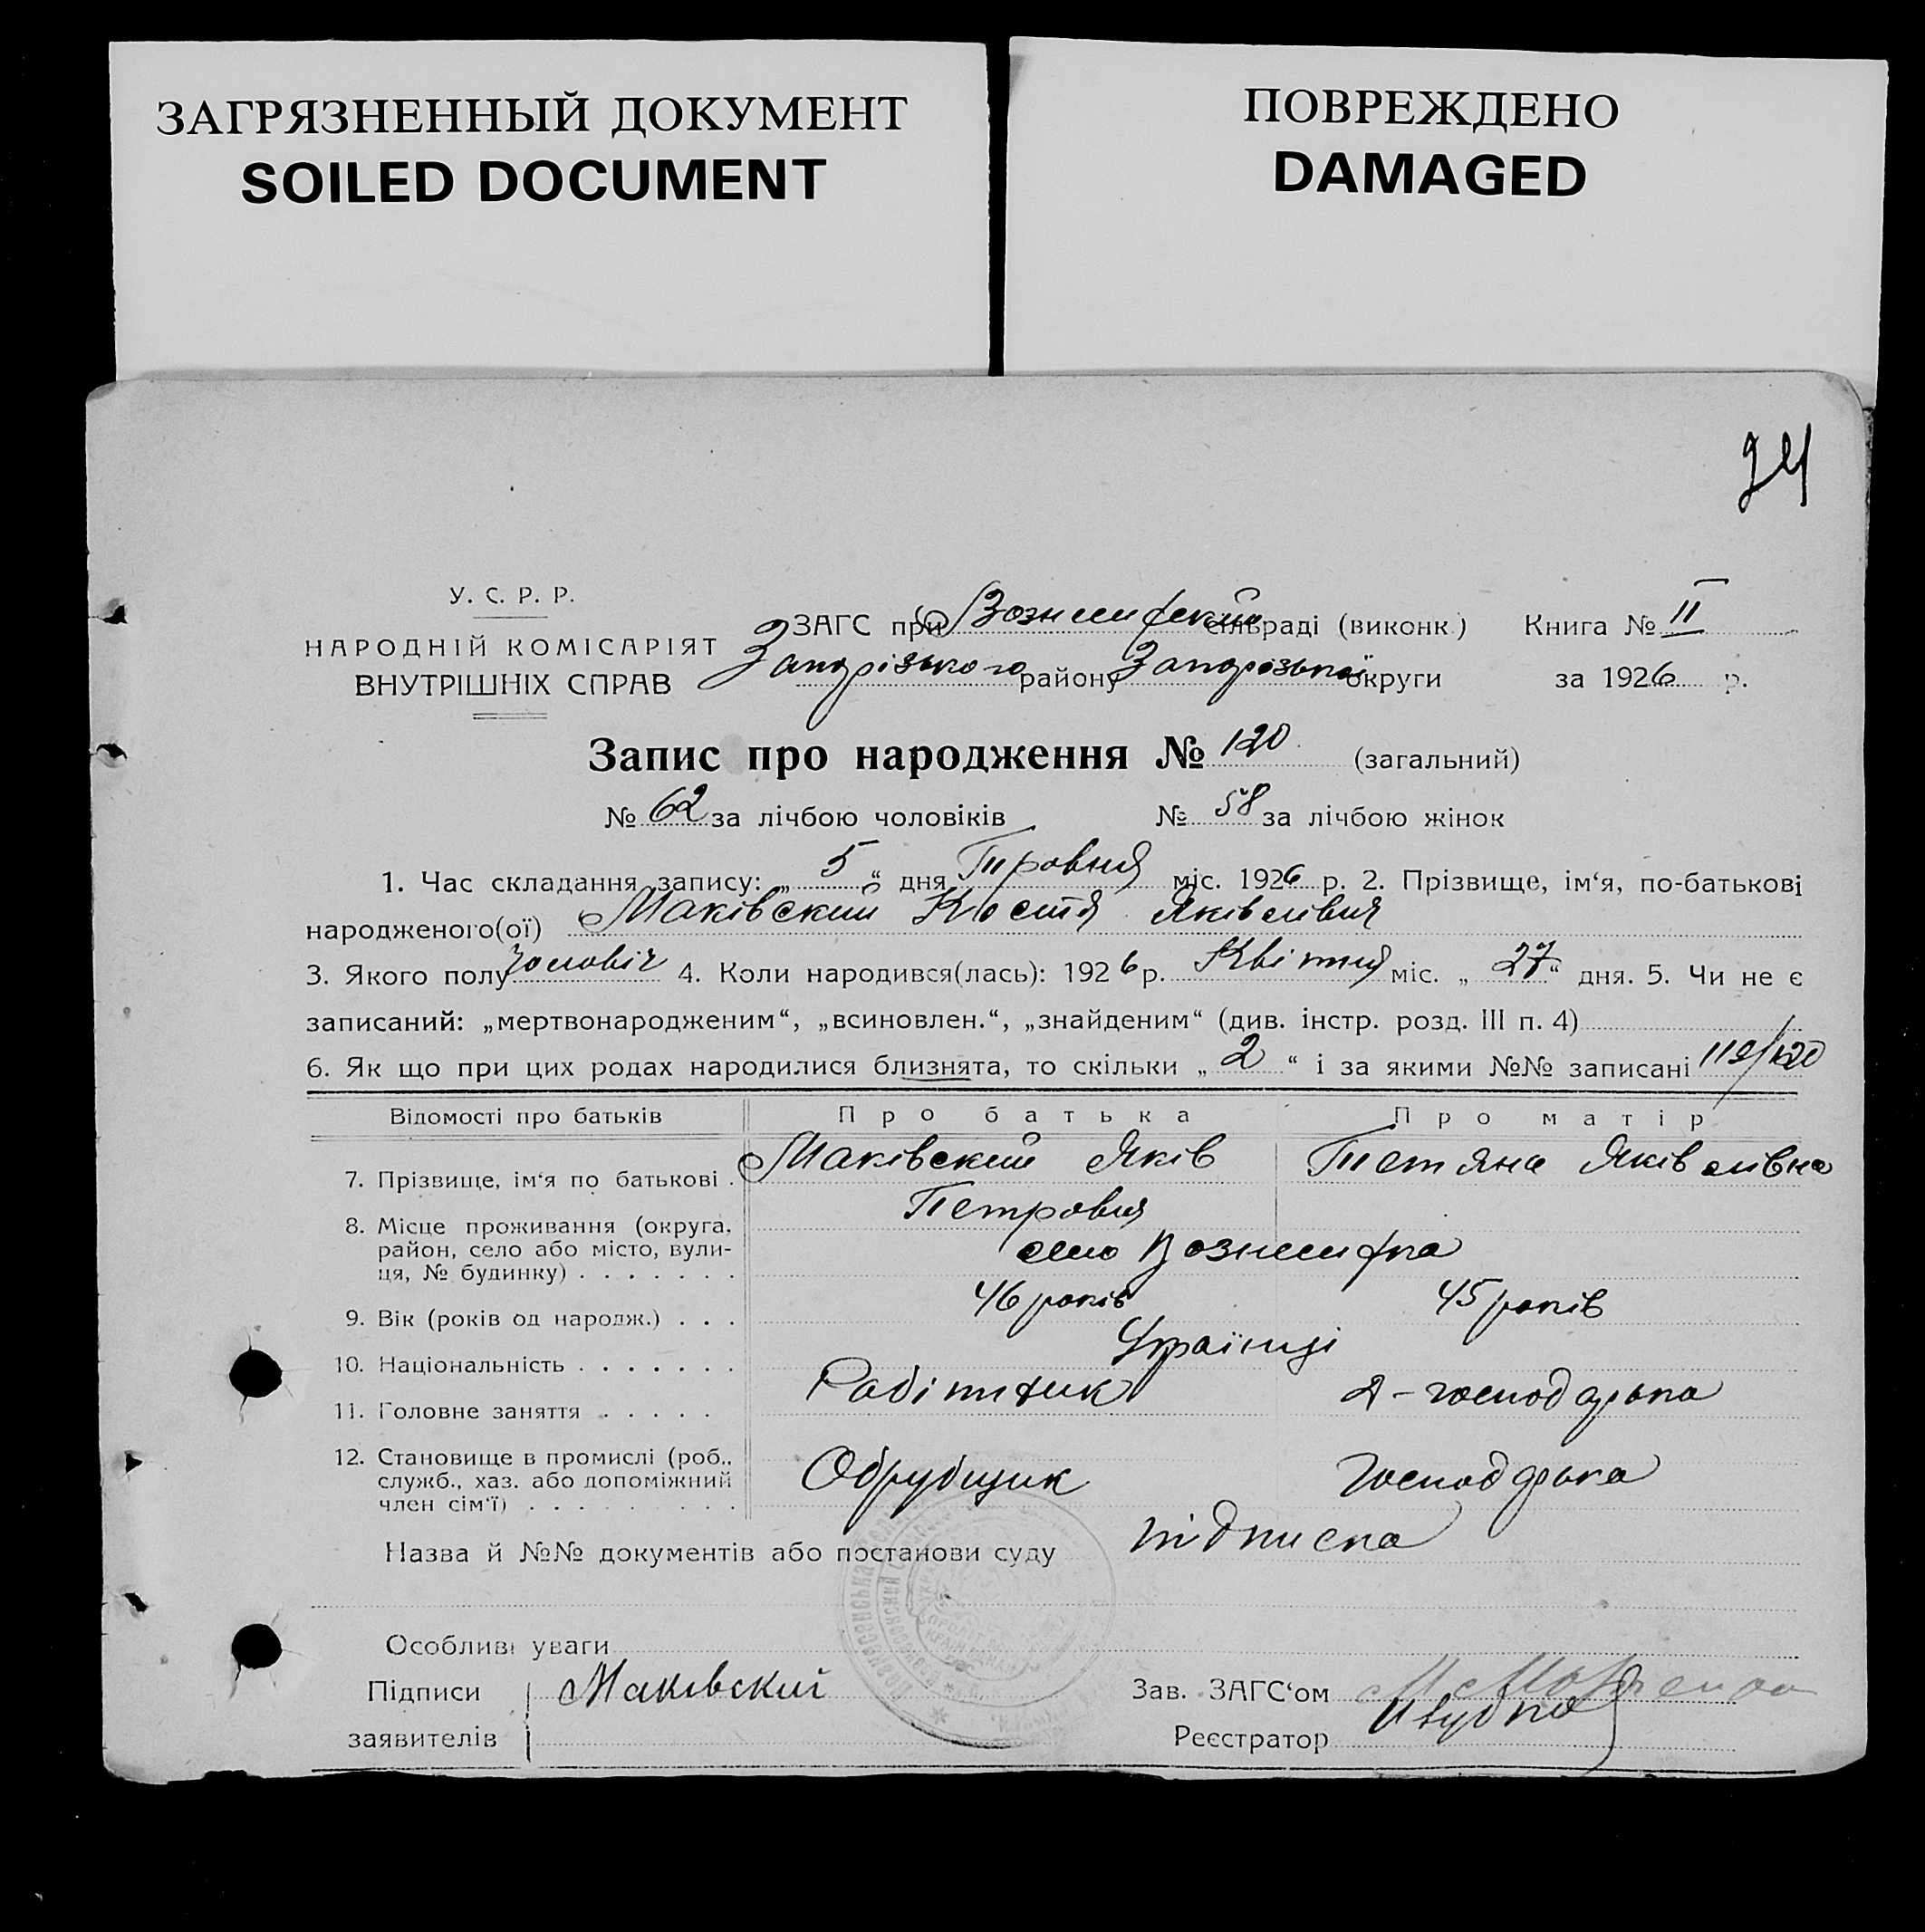 ЗАГРЯЗНЕННЫЙ ДОКУМЕНТ
SOILED DOCUMENT
ПОВРЕЖДЕНО
DAMAGED
У. С. Р. Р.
НАРОДНІЙ КОМІСАРІЯТ
ВНУТРІШНІХ СПРАВ
ЗАГС при сільраді (виконк.) Книга № II
Запорізького району Запорозької округи за 1926 р.
Запис про народження № 120 (загальний)
№ 62 за лічбою чоловіків № 58 за лічбою жінок
1. Час складання запису: „ 5 “ дня Тровня міс. 1926 р. 2. Прізвище, ім‘я, по-батькові
народженого(ої) Маківский Костя Яківлівич
3. Якого полу чоловіч 4. Коли народився(лась): 1926 р. Квітня міс. „ 27 “ дня. 5. Чи не є
записаний: „мертвонародженим“, „всиновлен.“, „знайденим“ (див. інстр. розд. III п. 4)
6. Як що при цих родах народилися близнята, то скільки „ 2 “ і за якими №№ записані 119/120
Відомості про батьків Про батька Про матір
7. Прізвище, ім‘я по батькові . Маківский Яків Тетяна Яківлівна
Петрович
8. Місце проживання (округа, район, село або місто, вулиця, № будинку) . . . . . . . село Вознесифка
9. Вік (років од народж.) . . . 46 років 45 років
10. Національність . . . . . . . Українці
11. Головне заняття . . . . . Робітник д-господарька
12. Становище в промислі (роб., служб., хаз. або допоміжний член сім‘ї) . . . . . . . . . Обрубщик Господарька
Назва й №№ документів або постанови суду підписка
Особливі уваги
Підписи Маківский Зав. ЗАГС‘ом
заявителів Реєстратор